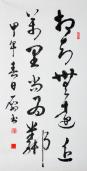 相知無遠近
萬里尚為鄰
甲午春日書